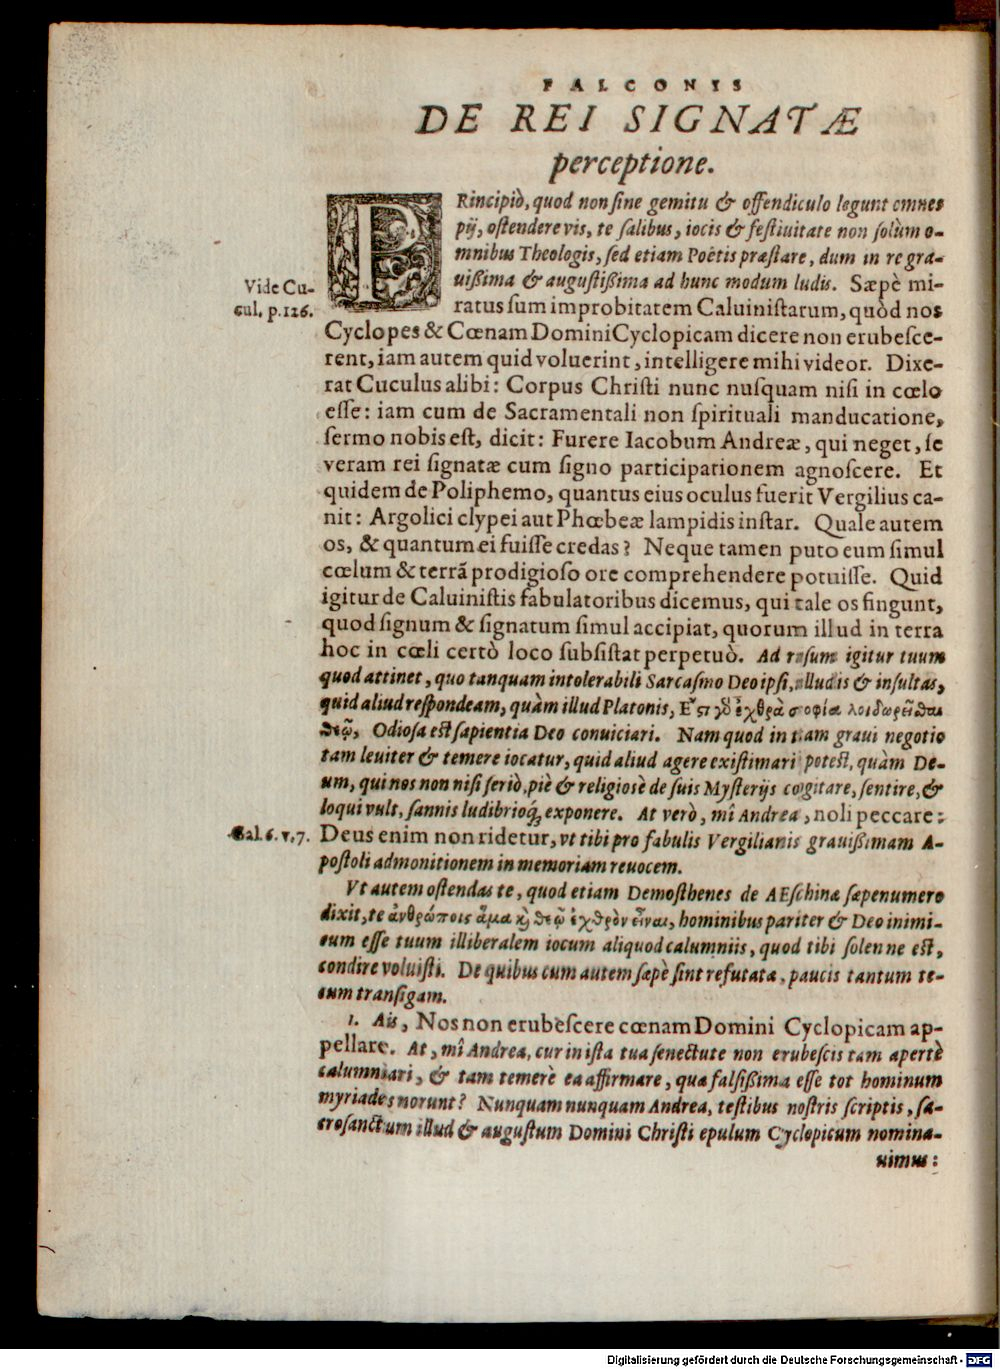 FALCONIS
DE REI SIGNATÆ
perceptione.
PRincipiò, quod non ſine gemitu & offendiculo legunt omnes
pij, oſtendere vis, te ſalibus, iocis & feſtiuitate non ſolùm o-
mnibus Theologis, ſed etiam Poëtis præſtare, dum in re gra-
uißima & auguſtißima ad hunc modum ludis. Sæpè mi-
Vide Cu-
cul. p. 126.
ratus ſum improbitatem Caluiniſtarum, quòd nos
Cyclopes & Cœnam Domini Cyclopicam dicere non erubeſce-
rent, iam autem quid voluerint, intelligere mihi videor. Dixe-
rat Cuculus alibi: Corpus Chriſti nunc nuſquam niſi in cœlo
eſſe: iam cum de Sacramentali non ſpirituali manducatione,
ſermo nobis eſt, dicit: Furere Iacobum Andreæ, qui neget, ſe
veram rei ſignatæ cum ſigno participationem agnoſcere. Et
quidem de Poliphemo, quantus eius oculus fuerit Vergilius ca-
nit: Argolici clypei aut Phœbeæ lampidis inſtar. Quale autem
os, & quantum ei fuiſſe credas? Neque tamen puto eum ſimul
cœlum & terrã prodigioſo ore comprehendere potuiſſe. Quid
igitur de Caluiniſtis fabulatoribus dicemus, qui tale os fingunt,
quod ſignum & ſignatum ſimul accipiat, quorum illud in terra
hoc in cœli certò loco ſubſiſtat perpetuò. Ad riſum igitur tuum
quod attinet, quo tanquam intolerabili Sarcaſmo Deo ipſi, illudis & inſultas,
quid aliud reſpondeam, quàm illud Platonis, Ἔςι γὸ ἐχθρὰ σοφία λοιδωρεῖσθαι
θεῷ, Odioſa eſt ſapientia Deo conuiciari. Nam quod in tam graui negotio
tam leuiter & temere iocatur, quid aliud agere exiſtimari poteſt, quàm De-
um, qui nos non niſi ſeriò, piè & religiosè de ſuis Myſterijs cogitare, ſentire, &
loqui vult, ſannis ludibrioq́; exponere. At verò, mî Andrea, noli peccare:
Gal. 6. v. 7.
Deus enim non ridetur, vt tibi pro fabulis Vergilianis grauißimam A-
poſtoli admonitionem in memoriam reuocem.
Vt autem oſtendas te, quod etiam Demoſthenes de AEſchine ſæpenumero
dixit, te ἀνθρώποις ἅμα ϗ̀ θεῷ ἐχθρὸν εἶναι, hominibus pariter & Deo inimi-
cum eſſe tuum illiberalem iocum aliquod calumniis, quod tibi ſolenne eſt,
condire voluiſti. De quibus cum autem ſæpè ſint refutata, paucis tantum te-
cum tranſigam.
1. Ais, Nos non erubeſcere cœnam Domini Cyclopicam ap-
pellare. At, mî Andrea, cur in iſta tua ſenectute non erubeſcis tam apertè
calumniari, & tam temerè ea affirmare, quæ falſißima eſſe tot hominum
myriades norunt? Nunquam nunquam Andrea, teſtibus noſtris ſcriptis, ſa-
croſanctum illud & auguſtum Domini Chriſti epulum Cyclopicum nomina-
uimus:
Digitalisierung gefördert durch die Deutsche Forschungsgemeinschaft - DFG